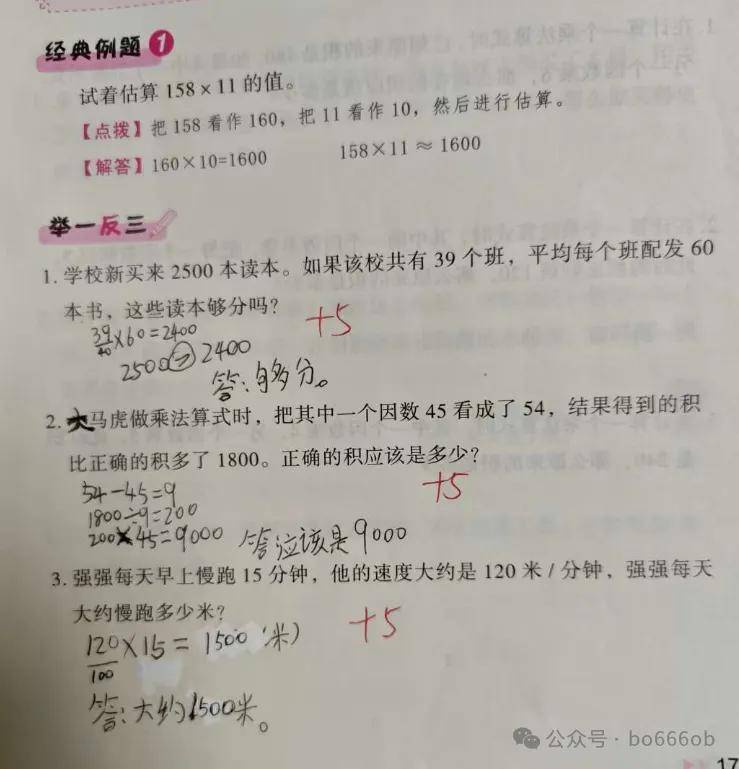 经典例题1
试着估算 158×11 的值。
【点拨】把 158 看作 160，把 11 看作 10，然后进行估算。
【解答】160×10=1600 158×11≈1600
举一反三
1. 学校新买来 2500 本读本。如果该校共有 39 个班，平均每个班配发 60
本书，这些读本够分吗？
39×60=2400
40
+5
2500>2400
答:够分。
2. 大马虎做乘法算式时，把其中一个因数 45 看成了 54，结果得到的积
比正确的积多了 1800。正确的积应该是多少？
54-45=9
+5
1800÷9=200
200×45=9000 答应该是9000
3. 强强每天早上慢跑 15 分钟，他的速度大约是 120 米/分钟，强强每天
大约慢跑多少米？
120×15=1500(米)
100
+5
答:大约1500米。
公众号·bo666ob
17